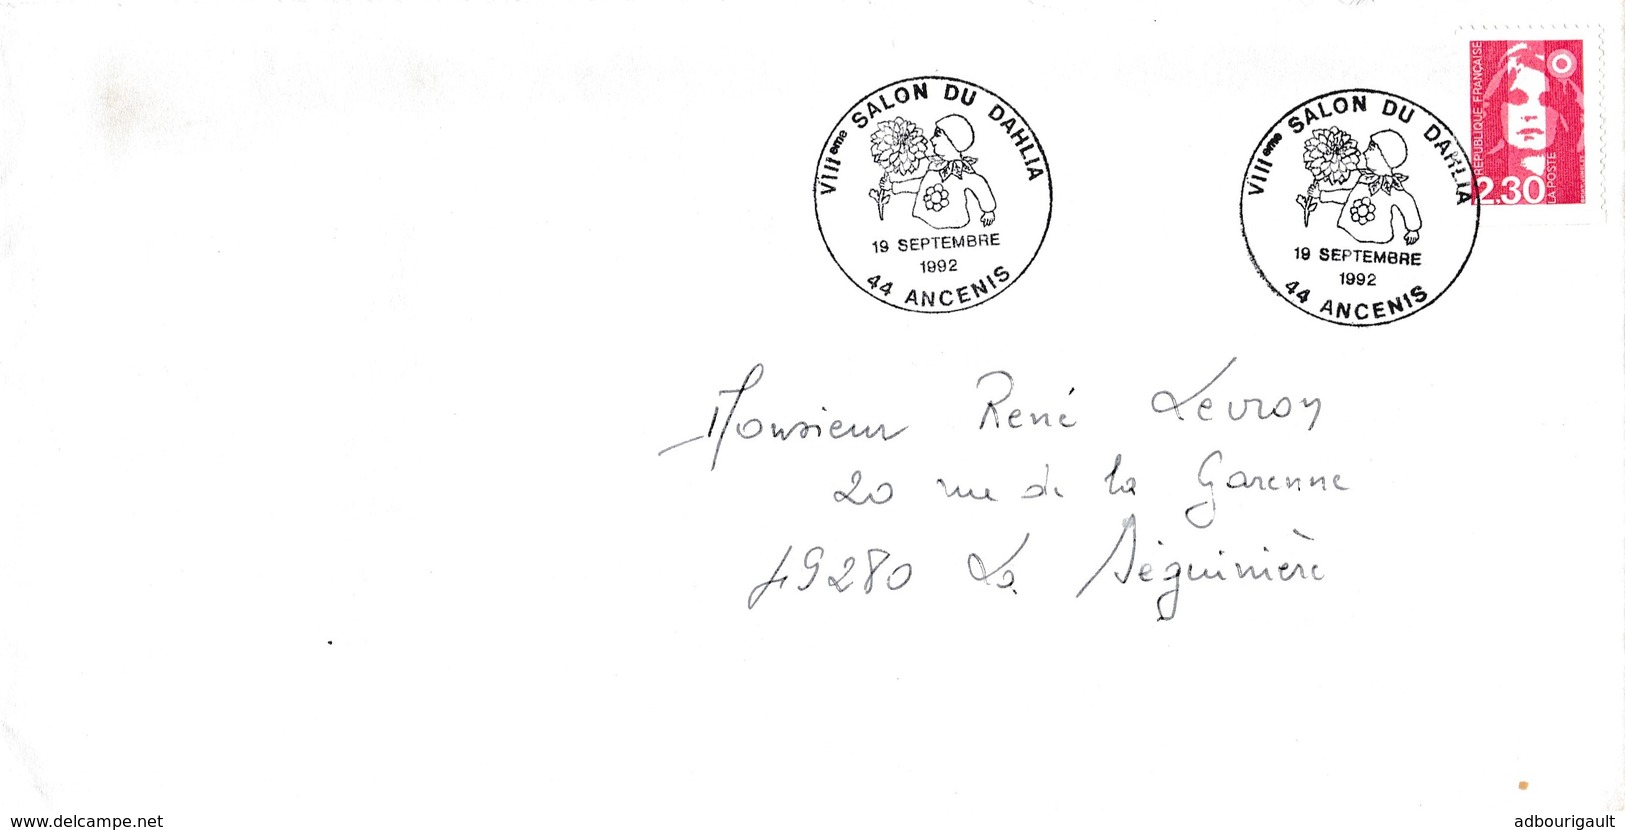 VIIIeme SALON DU DAHLIA
19 SEPTEMBRE
1992
44 ANCENIS
VIIIeme SALON DU DAHLIA
19 SEPTEMBRE
1992
44 ANCENIS
RÉPUBLIQUE FRANÇAISE
2.30
LA POSTE
Monsieur René Levron
20 rue de la Garenne
49280 La Séguinière
www.delcampe.net
adbourigault